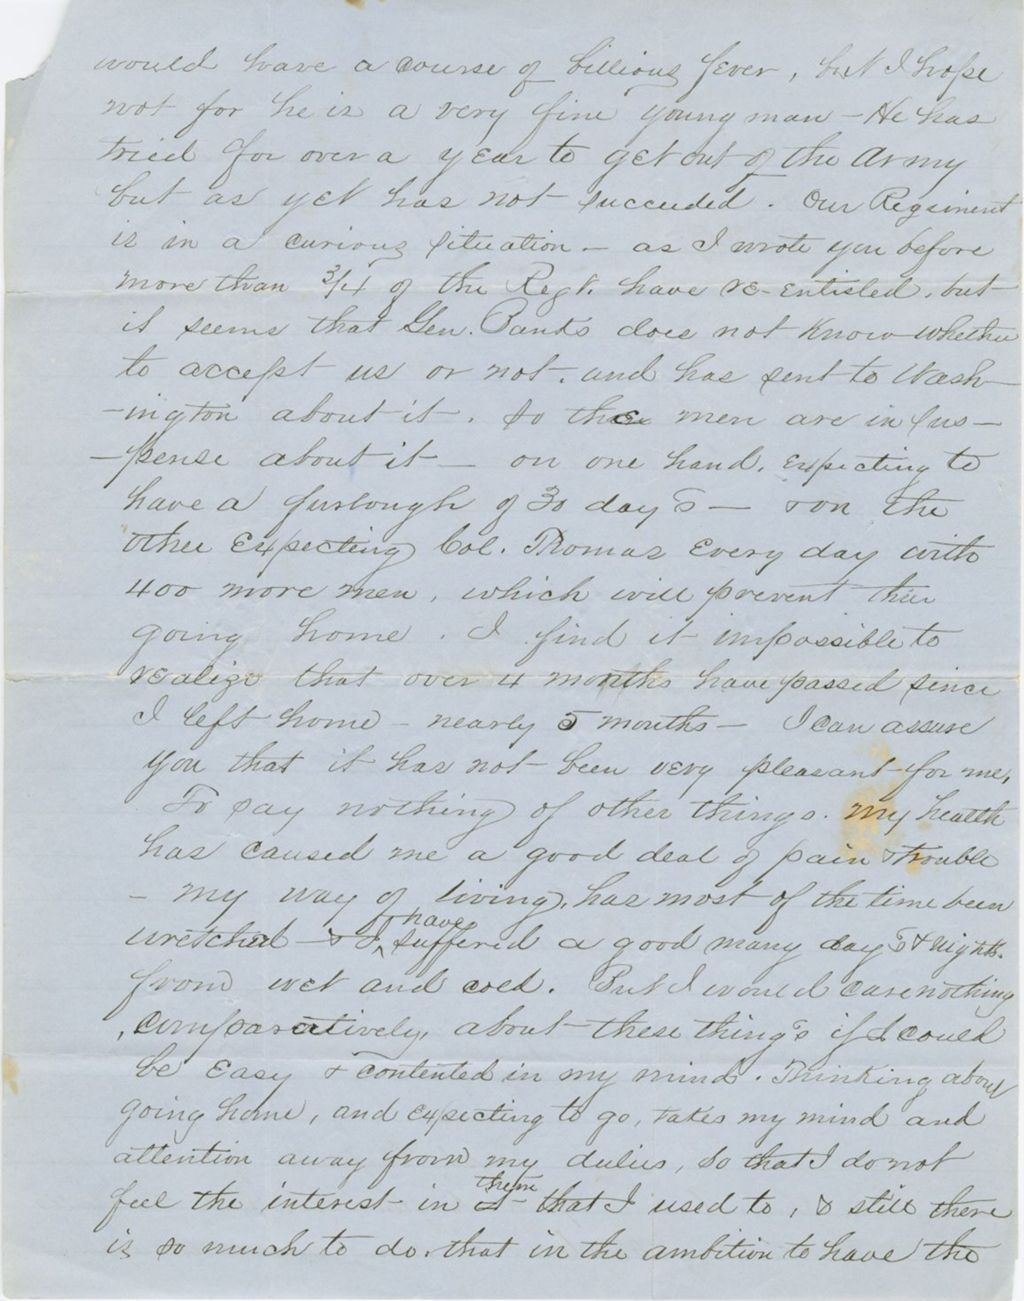 would have a course of billious fever, but I hope
not for he is a very fine young man - He has
tried for over a year to get out of the Army
but as yet has not succeeded. Our Regiment
is in a curious situation - as I wrote you before
more than 3/4 of the Regt. have re-entisled, but
it seems that Gen. Banks does not know whether
to accept us or not, and has sent to Wash-
-ington about it. So the men are in sus-
-pense about it - on one hand, expecting to
have a furlough of 30 days - & on the
other expecting Col. Thomas every day with
400 more men, which will prevent their
going home. I find it impossible to
realize that over 4 months have passed since
I left home - nearly 5 months - I can assure
you that it has not been very pleasant for me,
To say nothing of other things. my health
has caused me a good deal of pain & trouble
- my way of living, has most of the time been
wretched - & I have suffered a good many days & nights.
from wet and cold. But I would care nothing
, comparatively, about these things if I could
be easy & contented in my mind. Thinking about
going home, and expecting to go, takes my mind and
attention away from my duties, so that I do not
feel the interest in them that I used to, & still there
is so much to do, that in the ambition to have the